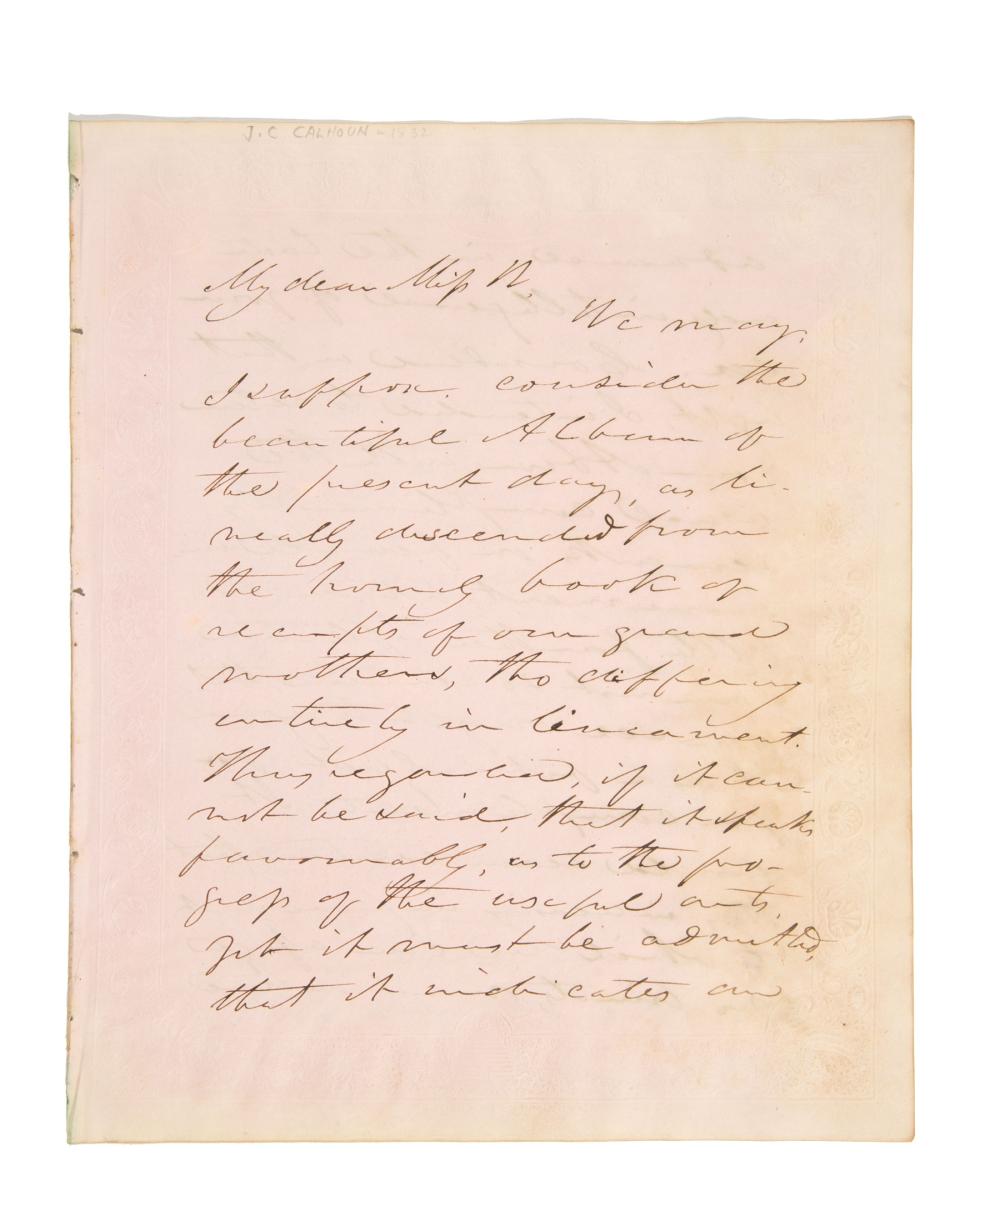 J. C CALHOUN - 1832
My dear Miss W.
We may,
I suppose. consider the
beautiful Album of
the present day, as li-
neally descended from
the homely book of
receipts of our grand
mothers, tho differing
entirely in lineament.
Thus regarded, if it can-
not be said, that it speaks
favourably, as to the pro-
gress of the useful arts,
yet it must be admitted,
that it indicates an